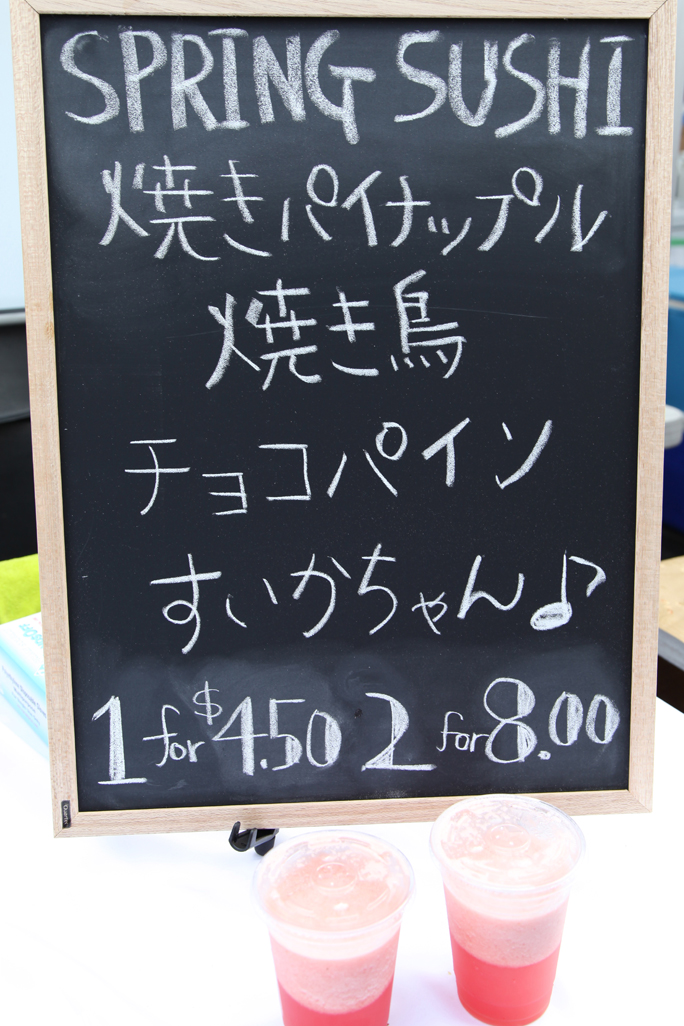 SPRING SUSHI
焼きパイナップル
焼き鳥
チョコパイン
すいかちゃん♪
1 for $4.50 2 for 8.00